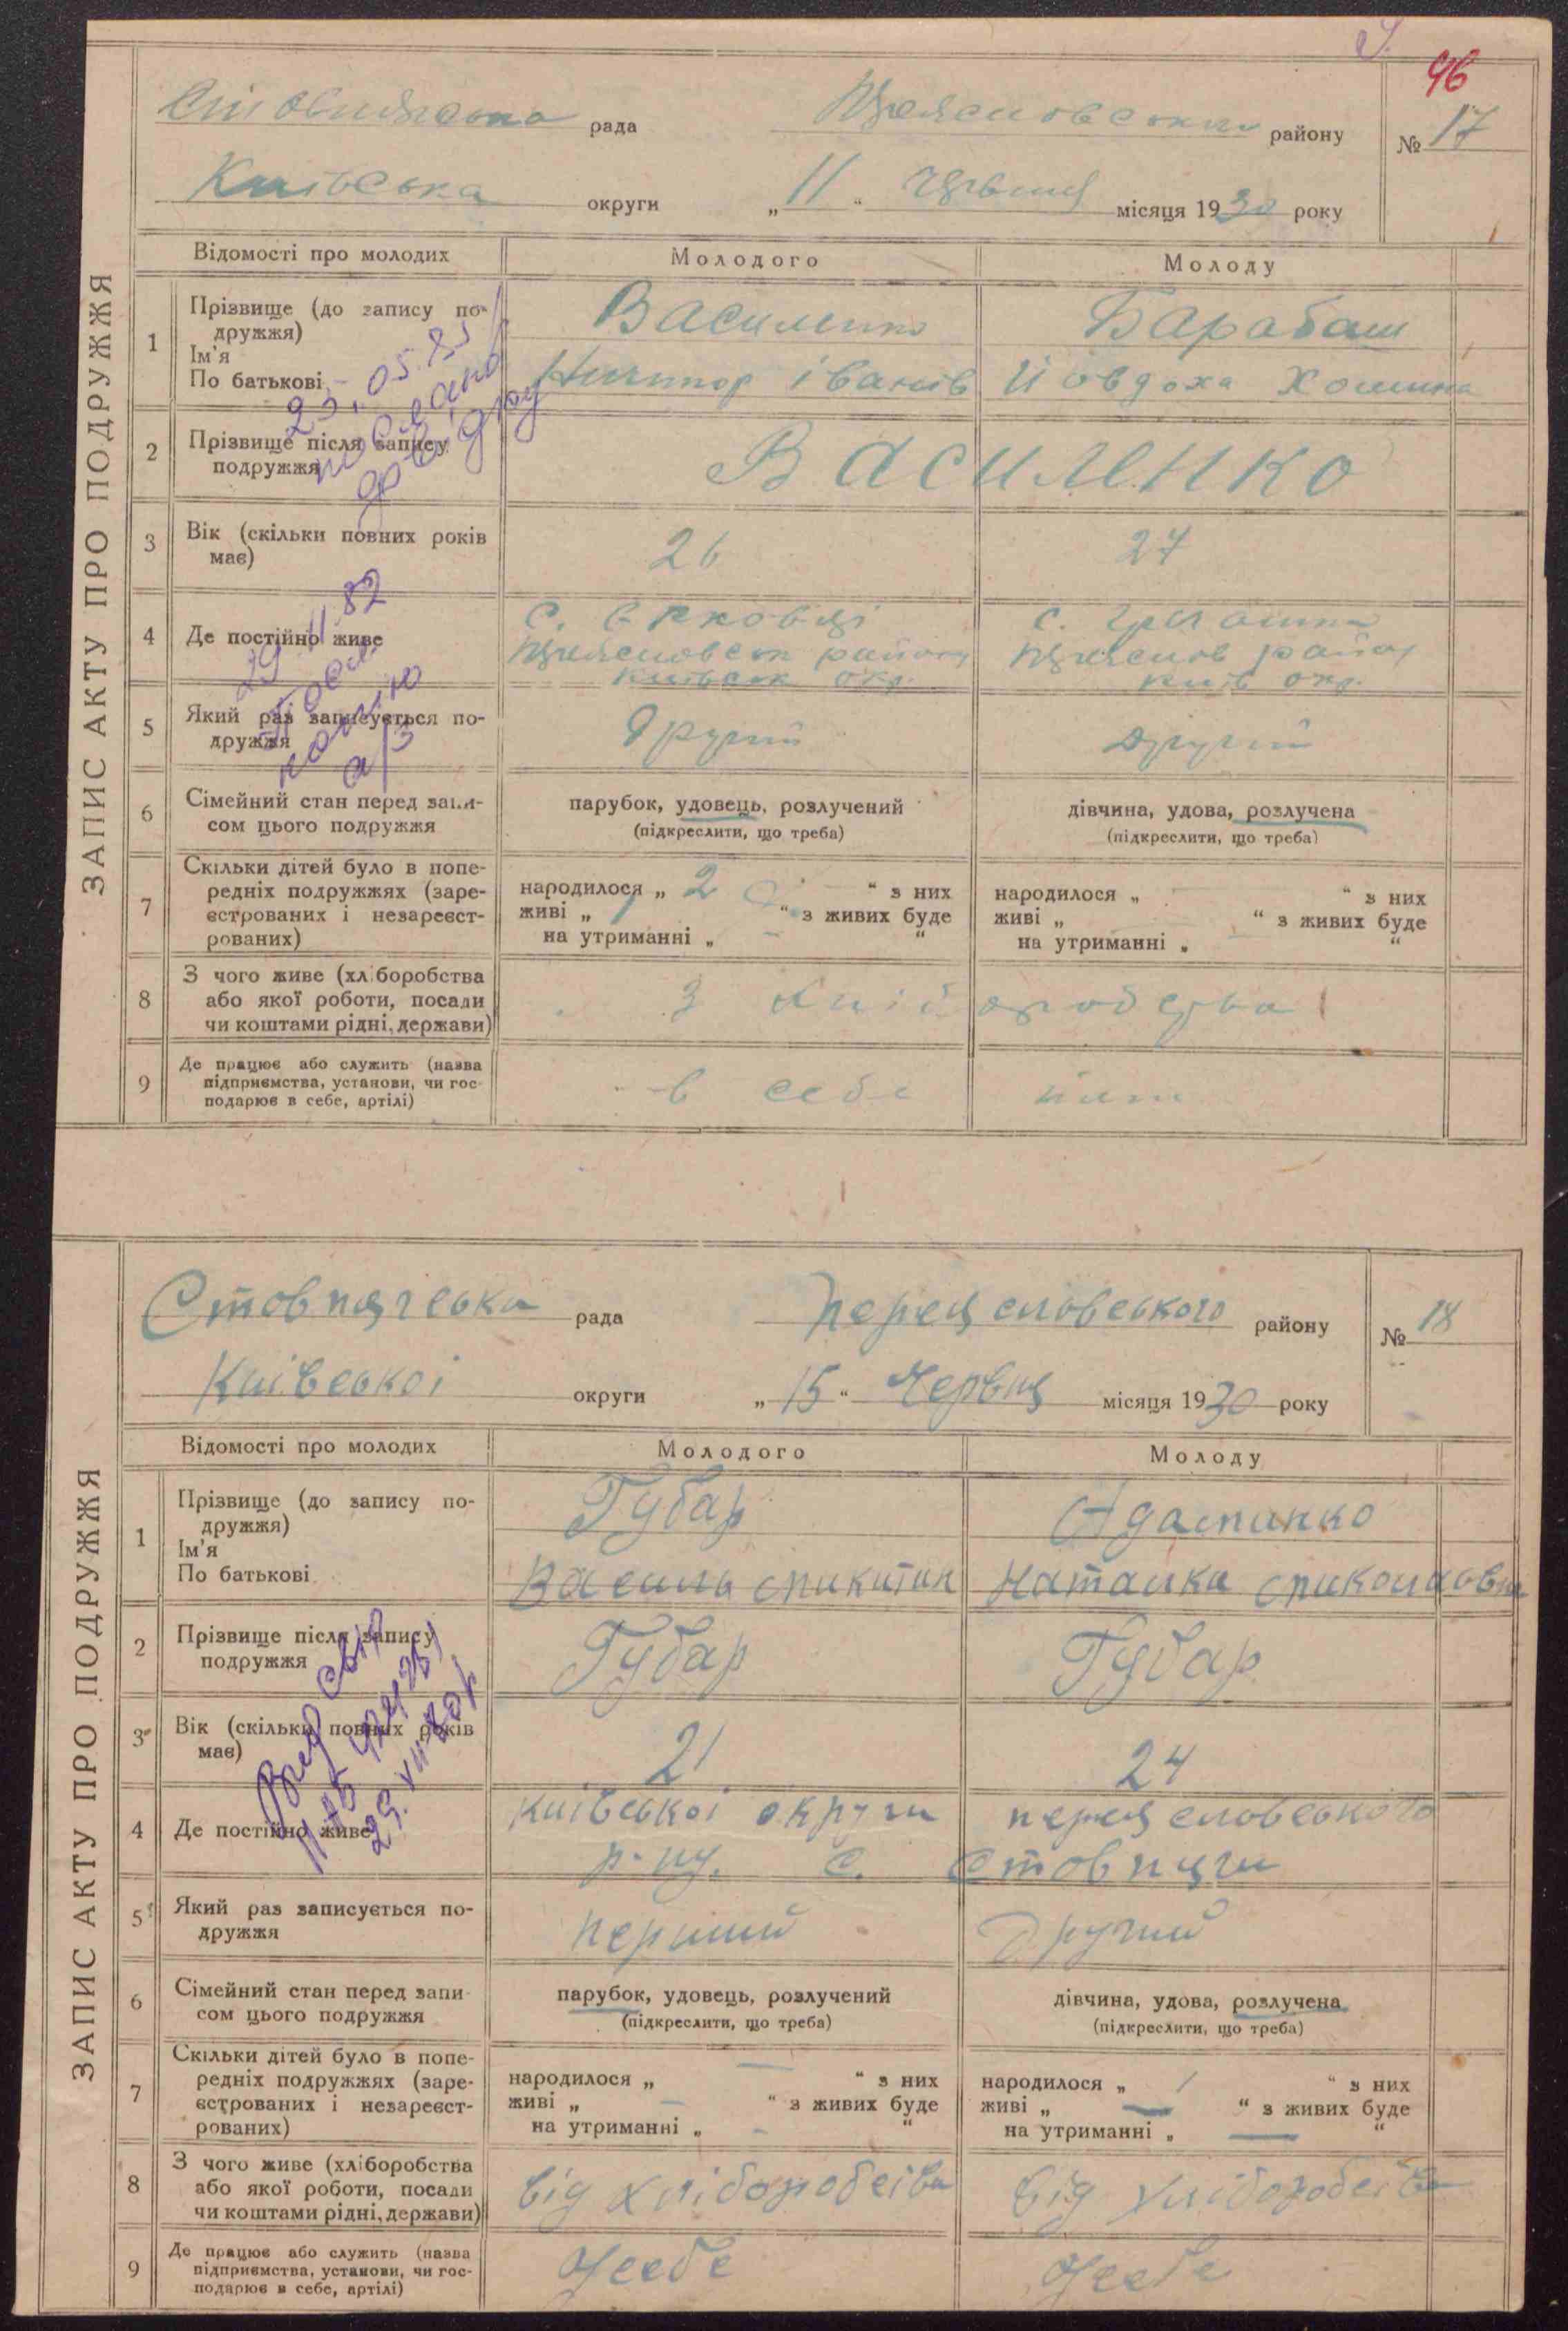 46
рада
району
№ 17
Київська округи „11“ червня місяця 1930 року
ЗАПИС АКТУ ПРО ПОДРУЖЖЯ
Відомості про молодих
Молодого
Молоду
1
Прізвище (до запису подружжя)
Ім'я
По батькові
Василенко
Барабаш
Ничипор Іванів
Йовдоха Хомина
2
Прізвище після запису
подружжя
Василенко
23.05.83
послано
довідку
3
Вік (скільки повних років
має)
26
27
4
Де постійно живе
с. Єрковці
район
Київськ окр.
с.
район
Київ окр.
29 11 82
копию
а/з
5
Який раз записується по-
дружжя
Другий
Другий
6
Сімейний стан перед запи-
сом цього подружжя
парубок, удовець, розлучений
(підкреслити, що треба)
дівчина, удова, розлучена
(підкреслити, що треба)
7
Скільки дітей було в попе-
редніх подружжях (заре-
єстрованих і незареєст-
рованих)
народилося „ 2 “ з них
живі „ “ з живих буде
на утриманні „ – “
народилося „ – “ з них
живі „ “ з живих буде
на утриманні „ – “
8
З чого живе (хліборобства
або якої роботи, посади
чи коштами рідні, держави)
З хліборобства
9
Де працює або служить (назва
підприємства, установи, чи гос-
подарює в себе, артілі)
в себе
ЗАПИС АКТУ ПРО ПОДРУЖЖЯ
Стовпягська рада
Переяславського району
№ 18
Київської округи „15“ Червня місяця 1930 року
Відомості про молодих
Молодого
Молоду
1
Прізвище (до запису по-
дружжя)
Ім'я
По батькові
Губар
Адаменко
Василь Микитин
Наталка Миколаовна
2
Прізвище після запису
подружжя
Губар
Губар
3
Вік (скільки повних років
має)
21
24
4
Де постійно живе
Київської округи Переяславського
р-ну. с. Стовпяги
5
Який раз записується по-
дружжя
перший
Другий
6
Сімейний стан перед запи-
сом цього подружжя
парубок, удовець, розлучений
(підкреслити, що треба)
дівчина, удова, розлучена
(підкреслити, що треба)
7
Скільки дітей було в попе-
редніх подружжях (заре-
єстрованих і незареєст-
рованих)
народилося „ — “ з них
живі „ — “ з живих буде
на утриманні „ – “
народилося „ 1 “ з них
живі „ — “ з живих буде
на утриманні „ — “
8
З чого живе (хліборобства
або якої роботи, посади
чи коштами рідні, держави)
від хліборобсіва
від хліборобсіва
9
Де працює або служить (назва
підприємства, установи, чи гос-
подарює в себе, артілі)
Усебе
Усебе